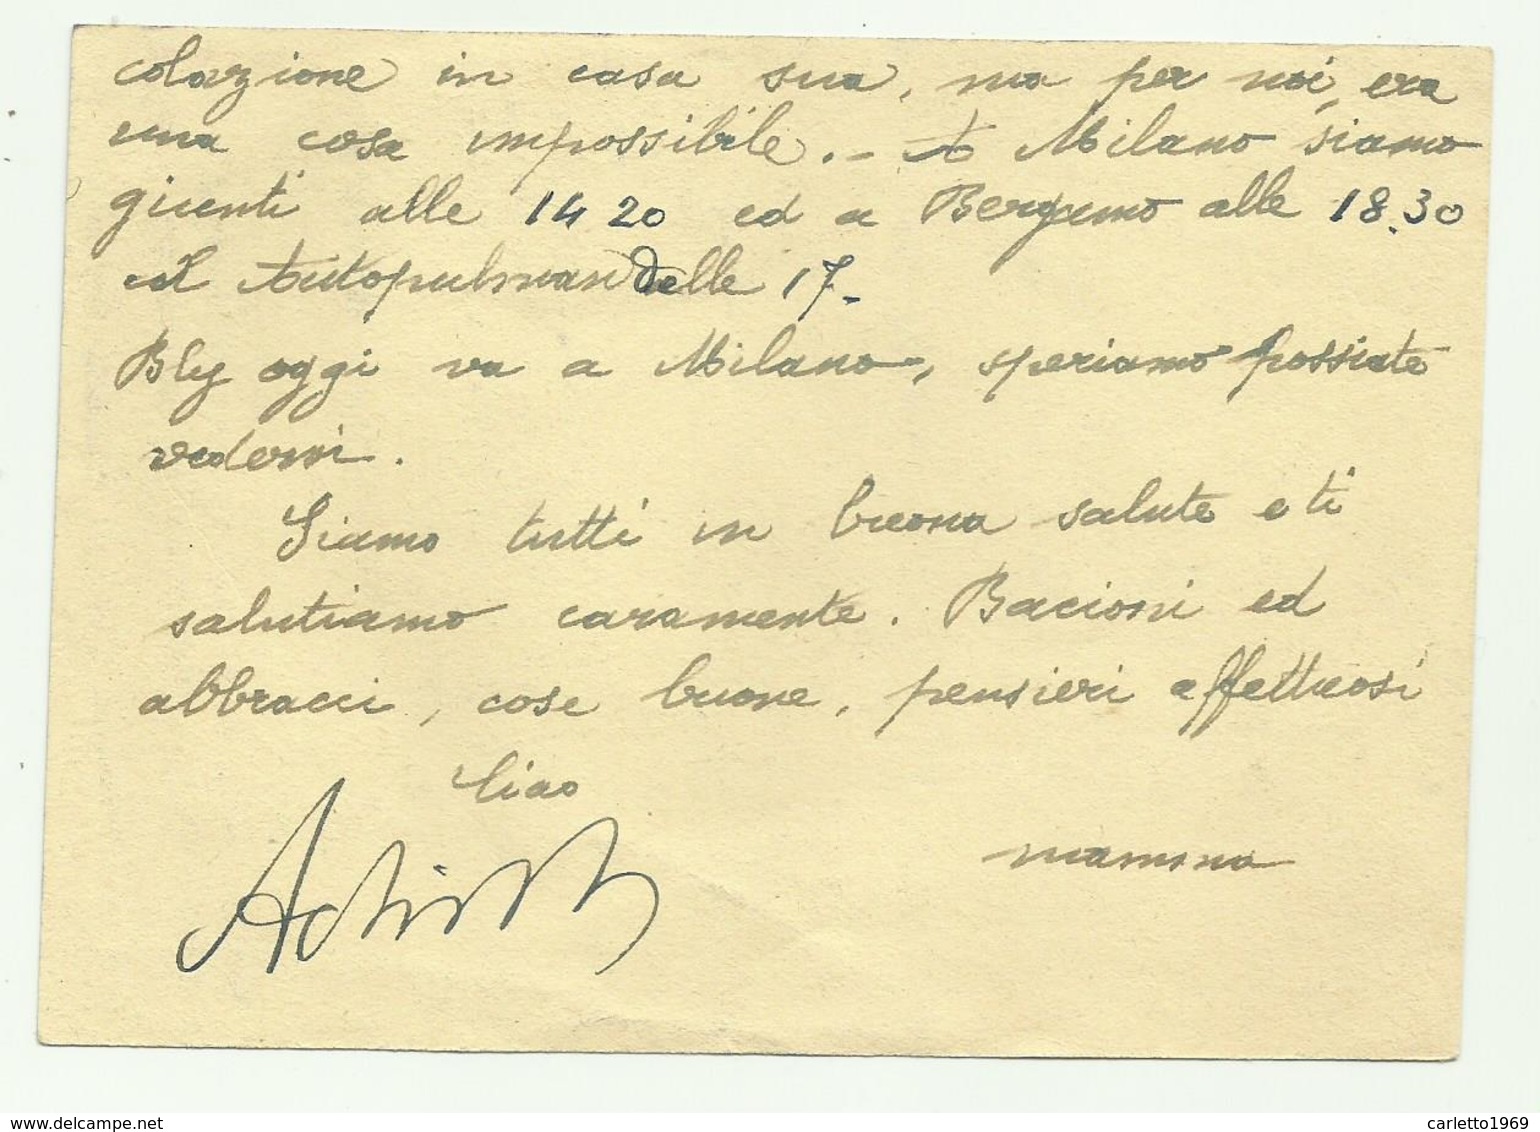 colazione in casa sua, ma per noi, era
una cosa impossibile. - A Milano siamo
giunti alle 14 20 ed a Bergamo alle 18.30
col Autopulman delle 17.
Bly oggi va a Milano, speriamo possiate
vedervi.
Siamo tutti in buona salute e ti
salutiamo caramente. Bacioni ed
abbracci, cose buone, pensieri affettuosi
Ciao
mamma
www.delcampe.net
carletto1969